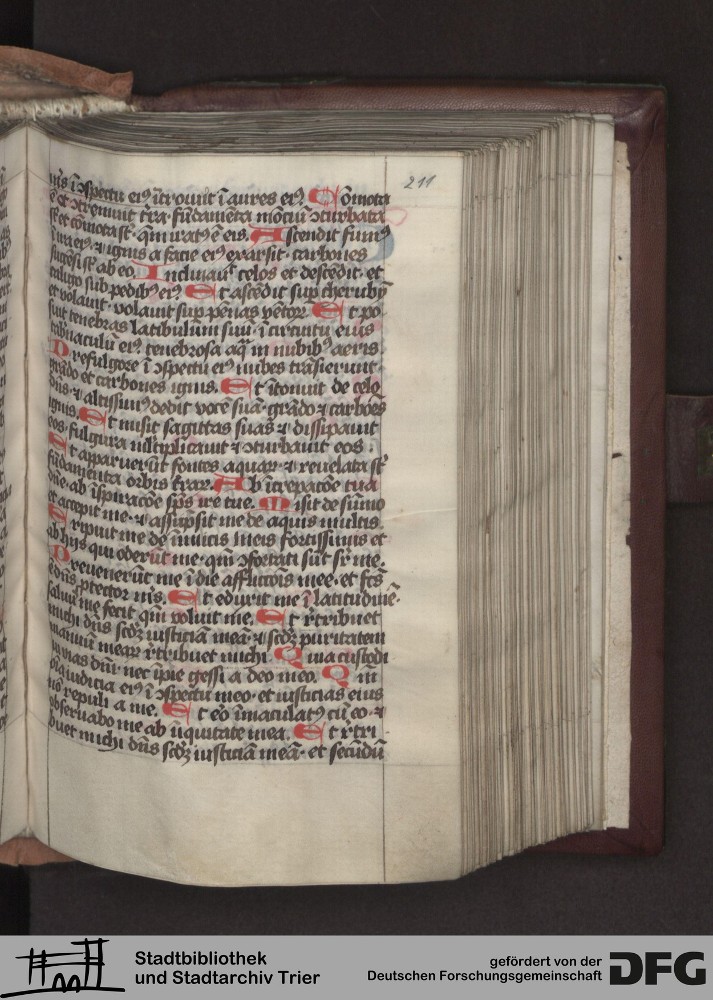 211
us ī ɔspectu eiꝰ ītrouit ī aures eiꝰ. Cōmota
ē et ɔtremuit tr̄a · fūdamēta mōtiū ɔturbata
sт̄ et cōmota sт̄ · qm̄ iratꝰ ē eis. Ascendit fumꝰ
ī ira eiꝰ ⁊ ignis a facie eiꝰ exarsit · carbones
succēsi sт̄ ab eo. Inclinauit celos et descēdit · et
caligo sub pedibꝰ eiꝰ. Et ascēdit sup cherubyn
et volauit · volauit sup pēnas vētoꝝ. Et po
suit tenebras latibulum suū · ī circuitu eius
tabnaculū eiꝰ. tenebrosa aq̄ in nubibꝰ aeris.
Prefulgore ī ɔspectu eiꝰ nubes trāsierunt ·
grādo et carbones ignis. Et ītonuit de celo
dn̄s · ⁊ altissimꝰ dedit vocē suā · grādo ⁊ carbōes
ignis. Et misit sagittas suas ⁊ dissipauit
eos · fulgura mltiplicauit ⁊ ɔturbauit eos.
Et apparuerūt fontes aquaꝝ · ⁊ reuelata sт̄
fūdamēta orbis tr̄aꝝ. Ab īcrepacōe tua
dn̄e · ab īspiracōe sp̄s ire tue. Misit de sūmo
et accepit me · ⁊ assūpsit me de aquis multis.
Eripuit me de īimicis meis fortissimis et
ab hijs qui oderūt me · qm̄ ɔfortati sūt sr̄ me.
Preuenerūt me ī die afflictōis mee · et fc̄s
ē dn̄s ꝓtector m̄s. Et eduxit me ī latitudinē ·
saluū me fecit qm̄ voluit me. Et r̄tribuet
michi dn̄s scdꝫ iusticiā meā · ⁊ scdꝫ puritatem
manuū meaꝝ r̄tribuet michi. Quia custodi
ui vias dn̄i · nec īpie gessi a deo meo. Qm̄
oīa iudicia eiꝰ ī ɔspectu meo · et iusticias eius
nō repuli a me. Et ero īmaculatꝰ cū eo · ⁊
obseruabo me ab iniquitate mea. Et r̄tri
buet michi dn̄s scdꝫ iusticiā meā · et secūdū
Stadtbibliothek
und Stadtarchiv Trier
gefördert von der
Deutschen Forschungsgemeinschaft DFG